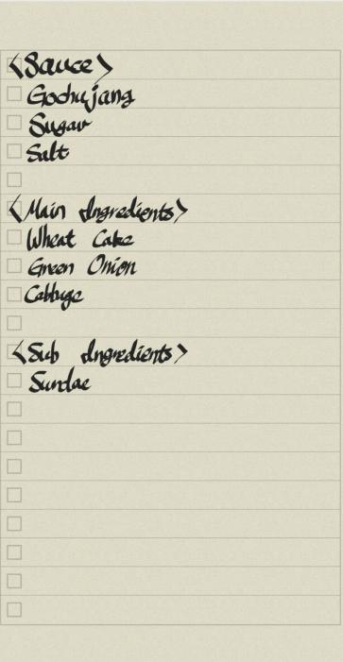 <Sauce>
Gochujang
Sugar
Salt
<Main Ingredients>
Wheat Cake
Green Onion
Cabbage
<Sub Ingredients>
Sundae